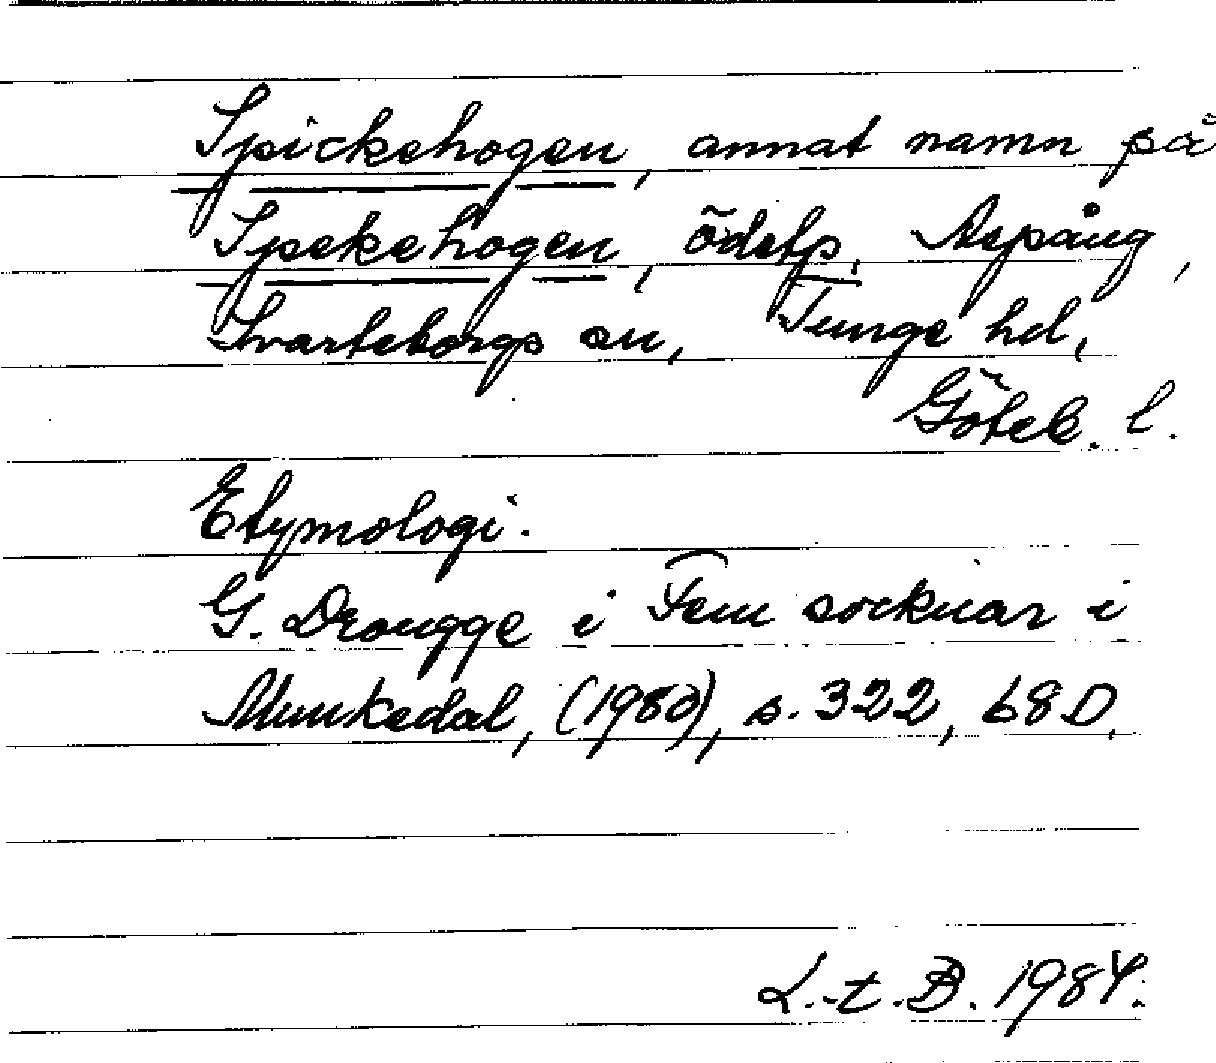 Spickehogen, annat namn på
Spekehogen, ödetp. Aspång,
Svarteborgs sn, Tunge hd,
Göteb. l.
Etymologi.
G. Drougge i Fem socknar i
Munkedal, (1980), s. 322, 68D.
L.t.B. 1984.